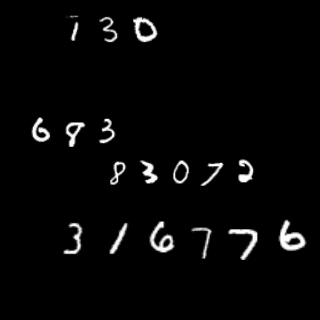 130
683
83072
316776